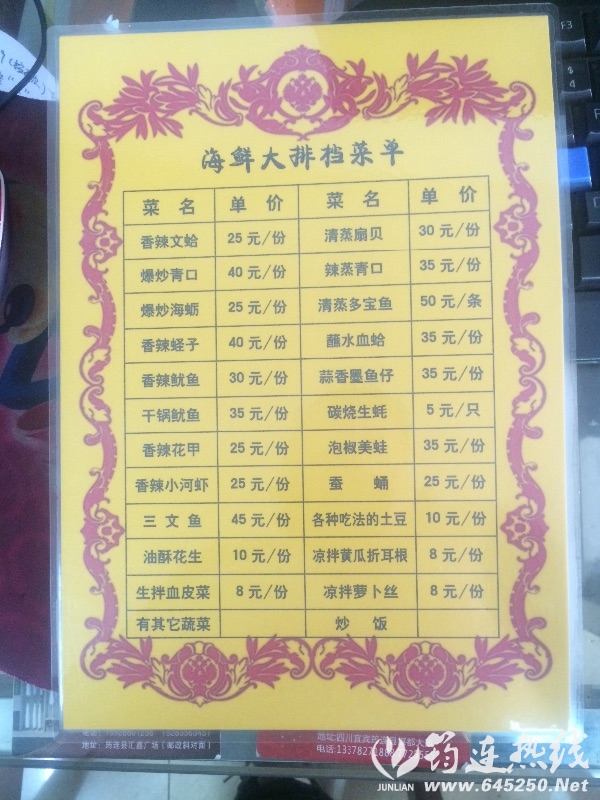 海鲜大排档菜单
菜 名 单 价 菜 名 单 价
香辣文蛤 25 元/份 清蒸扇贝 30 元/份
爆炒青口 40 元/份 辣蒸青口 35 元/份
爆炒海蛎 25 元/份 清蒸多宝鱼 50 元/条
香辣蛏子 40 元/份 蘸水血蛤 35 元/份
香辣鱿鱼 30 元/份 蒜香墨鱼仔 35 元/份
干锅鱿鱼 35 元/份 碳烧生蚝 5 元/只
香辣花甲 25 元/份 泡椒美蛙 35 元/份
香辣小河虾 25 元/份 蚕 蛹 25 元/份
三 文 鱼 45 元/份 各种吃法的土豆 10 元/份
油酥花生 10 元/份 凉拌黄瓜折耳根 8 元/份
生拌血皮菜 8 元/份 凉拌萝卜丝 8 元/份
有其它蔬菜 炒 饭
地址:筠连县汇鑫广场(邮政斜对面)
F3
筠连热线
JUNLIAN
www.645250.Net